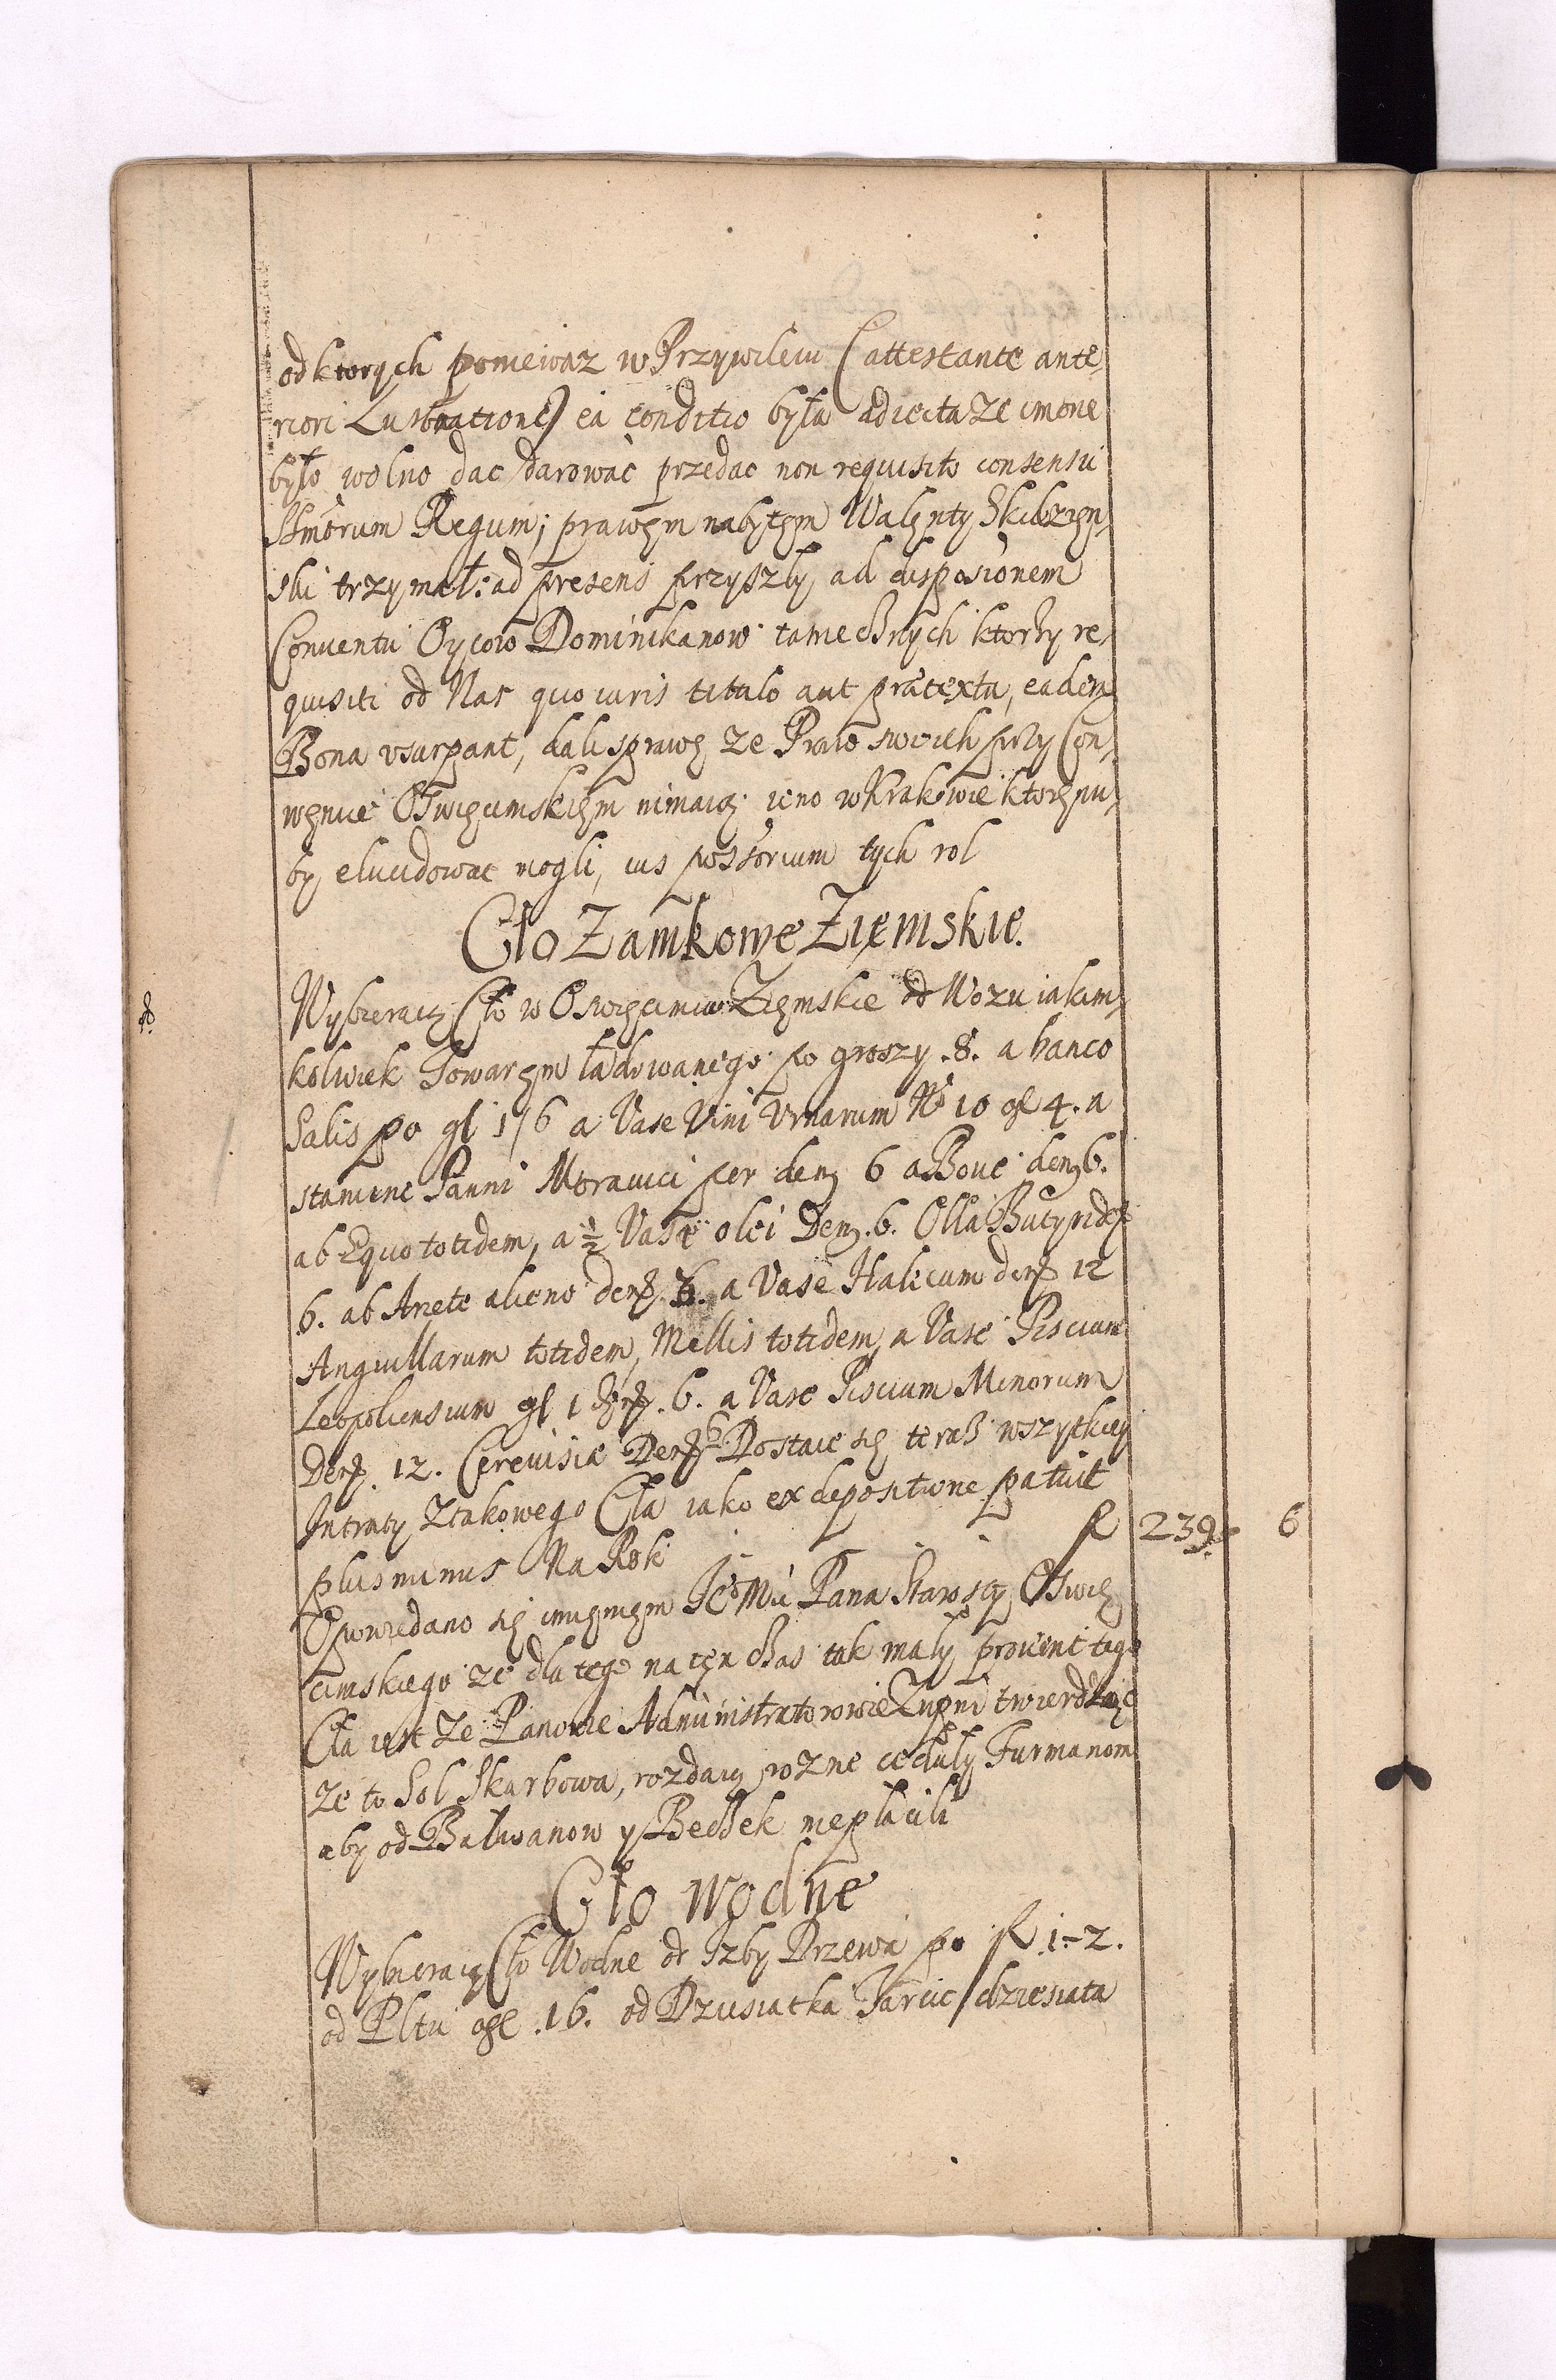 od ktorych poniewaz w Przywileiu (attestante ante,
riori Lustratione) ea conditio była adiecta ze imone
było wolno dac darowac przedac non requisito consensu
SSmorum Regum; prawem nabytym Walenty Skidzyn,
ski trzymał: ad presens przyszły ad disposionem
Conventu Oycow Dominikanow tamecznych ktorzy re,
quisiti od Nas quo iuris titulo aut prætextu, eadem
Bona usurpant, dali sprawę ze Praw swoich przy Con,
wencie Oswięcimskięm nimaią ieno w Krakowie ktorę pu,
by elucidowac mogli, ius possorium tych rol
Cło Zamkowe Zięmskie.
Wybieraią Cło w Oswięcimiu Zięmskie od Wozu iakim,
kolwiek Towarem ładowanego po groszy .8. a banco
Salis po gl 1/6 a Vase Vini Urnarum No 10 gl 4. a
stamine Panni Moravici per den 6 a Bove den 6.
ab Equo totidem, a ½ Vase olei Den. 6. Olla Butyri den
6. ab Ariete alieno den 6. a Vase Halecum den 12
Anguillarum totidem, Mellis totidem, a Vase Piscium
Leopoliensium gl 1 den. 6. a Vase Piscium Minorum
Den. 12. Cerevisiæ Den 6 Dostaie się teraz wszytkiey
Intraty z takowego Cła iako ex depositione patuit
plus minus Na Rok fl 239. 6
Opowiedano się imieniem Jeo Mci Pana Starosty Oswię
cimskiego ze dla tego na tęn czas tak mały provent tego
Cła iest ze Panowie Administratorowie Zupni twierdząc
ze to Sol Skarbowa, rozdaią rozne ceduły Furmanom
aby od Bałwanow y Beczek niepłacili
Cło wodne
Wybieraią Cło Wodne od Izby Drzewa po fl 1-2.
od Pltu gl .16. od Dziesiatka Tarcic / dziesiata